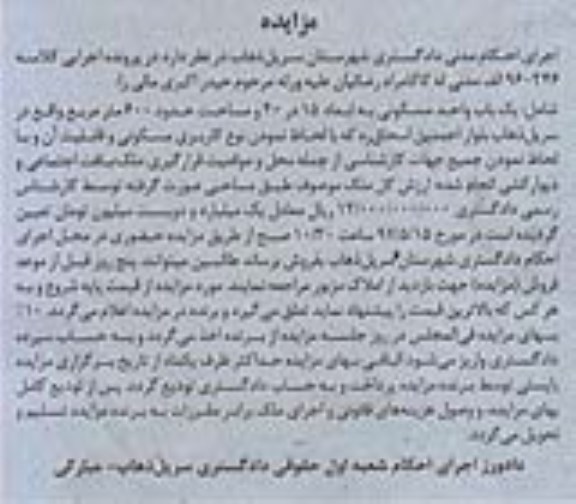 مزایده
اجرای احکام مدنی دادگستری شهرستان سرپل‌ذهاب در نظر دارد در پرونده اجرایی کلاسه
۹۶۰۲۳۶ الف مدنی له کامراد رضائیان علیه ورثه مرحوم حیدر اکبری مالی را
شامل: یک باب واحد مسکونی به ابعاد ۱۵ در ۴۰ و مساحت حدود ۶۰۰ متر مربع واقع در
سرپل‌ذهاب بلوار که با لحاظ نمودن نوع کاربری مسکونی و قابلیت آن و با
لحاظ نمودن جمیع جهات کارشناسی از جمله محل و موقعیت قرارگیری ملک بافت اجتماعی و
دیوارکشی انجام شده: ارزش کل ملک موصوف طبق مساحی صورت گرفته توسط کارشناس
رسمی دادگستری ۱۲/۰۰۰/۰۰۰/۰۰۰ ریال معادل یک میلیارد و دویست میلیون تومان تعیین
گردیده است در مورخ ۹۷/۵/۱۵ ساعت ۱۰:۳۰ صبح از طریق مزایده حضوری در محل اجرای
احکام دادگستری شهرستان سرپل‌ذهاب بفروش برساند طالبین میتوانند پنج روز قبل از موعد
فروش (مزایده) جهت بازدید از املاک مزبور مراجعه نمایند. مورد مزایده از قیمت پایه شروع و به
هر کس که بالاترین قیمت را پیشنهاد نماید تعلق می‌گیرد و برنده در مزایده اعلام می‌گردد. ۱۰٪
بهای مزایده فی‌المجلس در روز جلسه مزایده از برنده اخذ می‌گردد و به حساب سپرده
دادگستری واریز می‌شود الباقی بهای مزایده حداکثر ظرف یکماه از تاریخ برگزاری مزایده
بایستی توسط برنده مزایده پرداخت و به حساب دادگستری تودیع گردد. پس از تودیع کامل
بهای مزایده، و وصول هزینه‌های قانونی و اجرای ملک برابر مقررات به برنده مزایده تسلیم و
تحویل می‌گردد.
دادورز اجرای احکام شعبه اول حقوقی دادگستری سرپل‌ذهاب- مبارکی